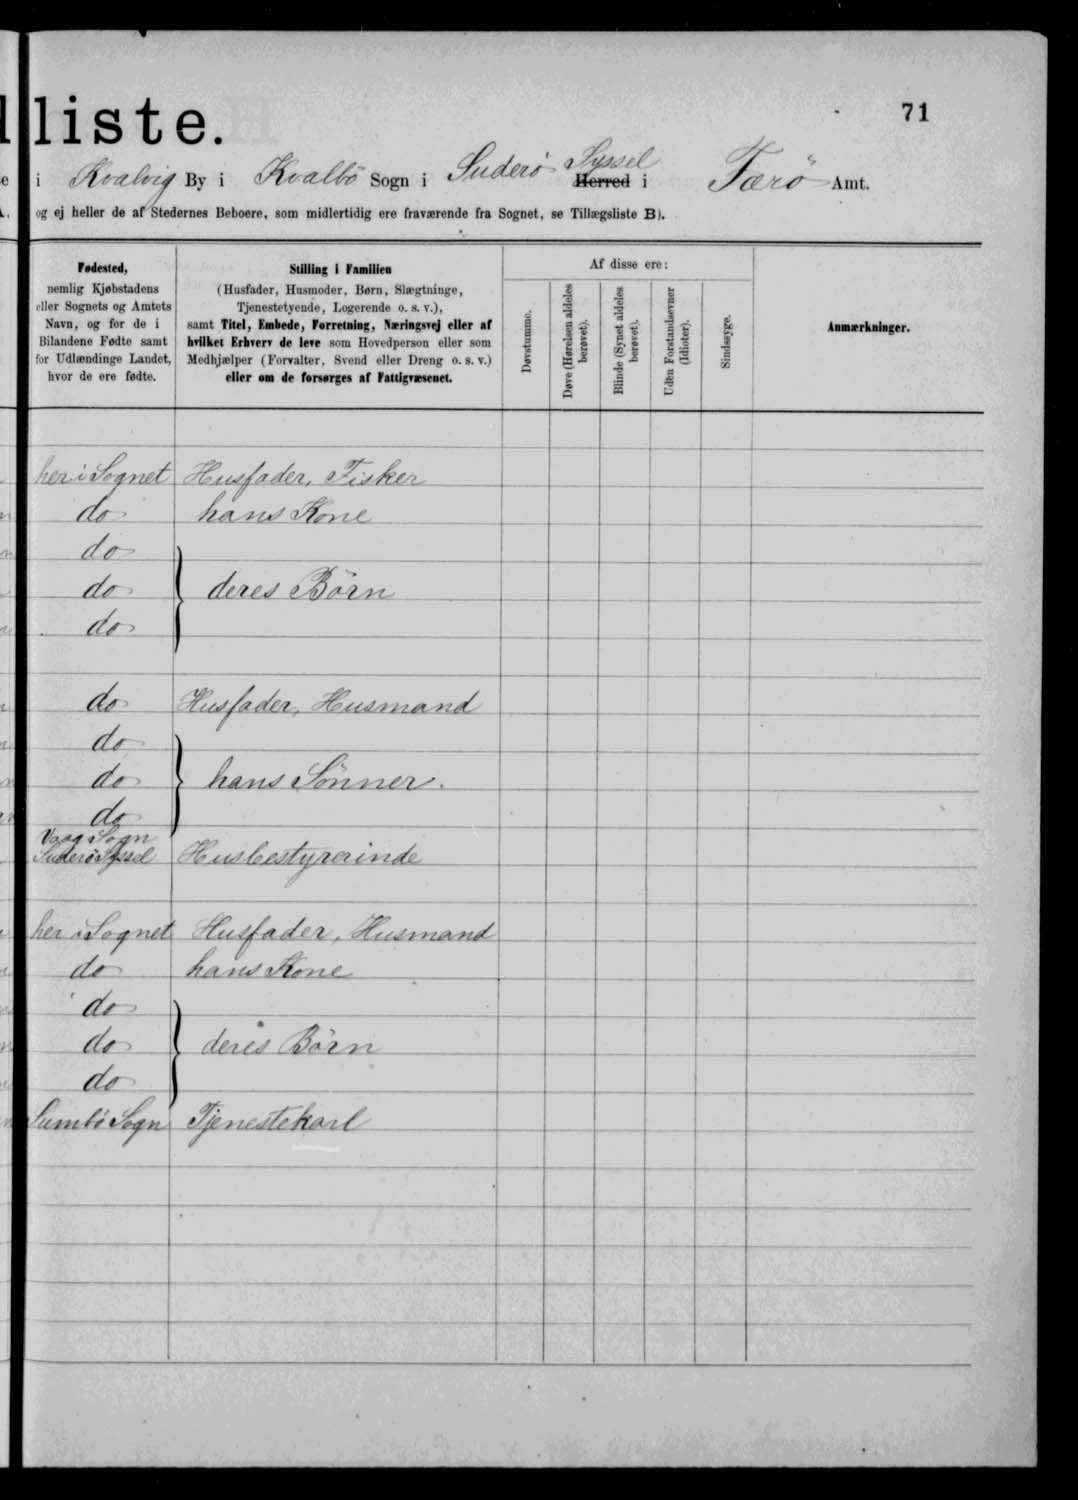 liste.
71
i Kvalvig By i Kvalbö Sogn i Suderö Syssel Herred i Færö Amt.
og ej heller de af Stedernes Beboere, som midlertidig ere fraværende fra Sognet, se Tillægsliste B).
Fødested,
nemlig Kjøbstadens
eller Sognets og Amtets
Navn, og for de i
Bilandene Fødte samt
for Udlændinge Landet,
hvor de ere fødte.
Stilling i Familien
(Husfader, Husmoder, Børn, Slægtninge,
Tjenestetyende, Logerende o. s. v.),
samt Titel, Embede, Forretning, Næringsvej eller af
hvilket Erhverv de leve som Hovedperson eller som
Medhjælper (Forvalter, Svend eller Dreng o. s. v.)
eller om de forsørges af Fattigvæsenet.
Af disse ere:
Døvstumme.
Døve (Hørelsen aldeles
berøvet).
Blinde (Synet aldeles
berøvet).
Uden Forstandsevner
(Idioter).
Sindssyge.
Anmærkninger.
her i Sognet Husfader, Fisker
do hans Kone
do
do deres Börn
do
do Husfader, Husmand
do
do hans Sönner.
do
Vaag Sogn
Suderö Syssel Husbestyrerinde
her i Sognet Husfader, Husmand
do hans Kone
do
do deres Börn
do
Sumbö Sogn Tjenestekarl